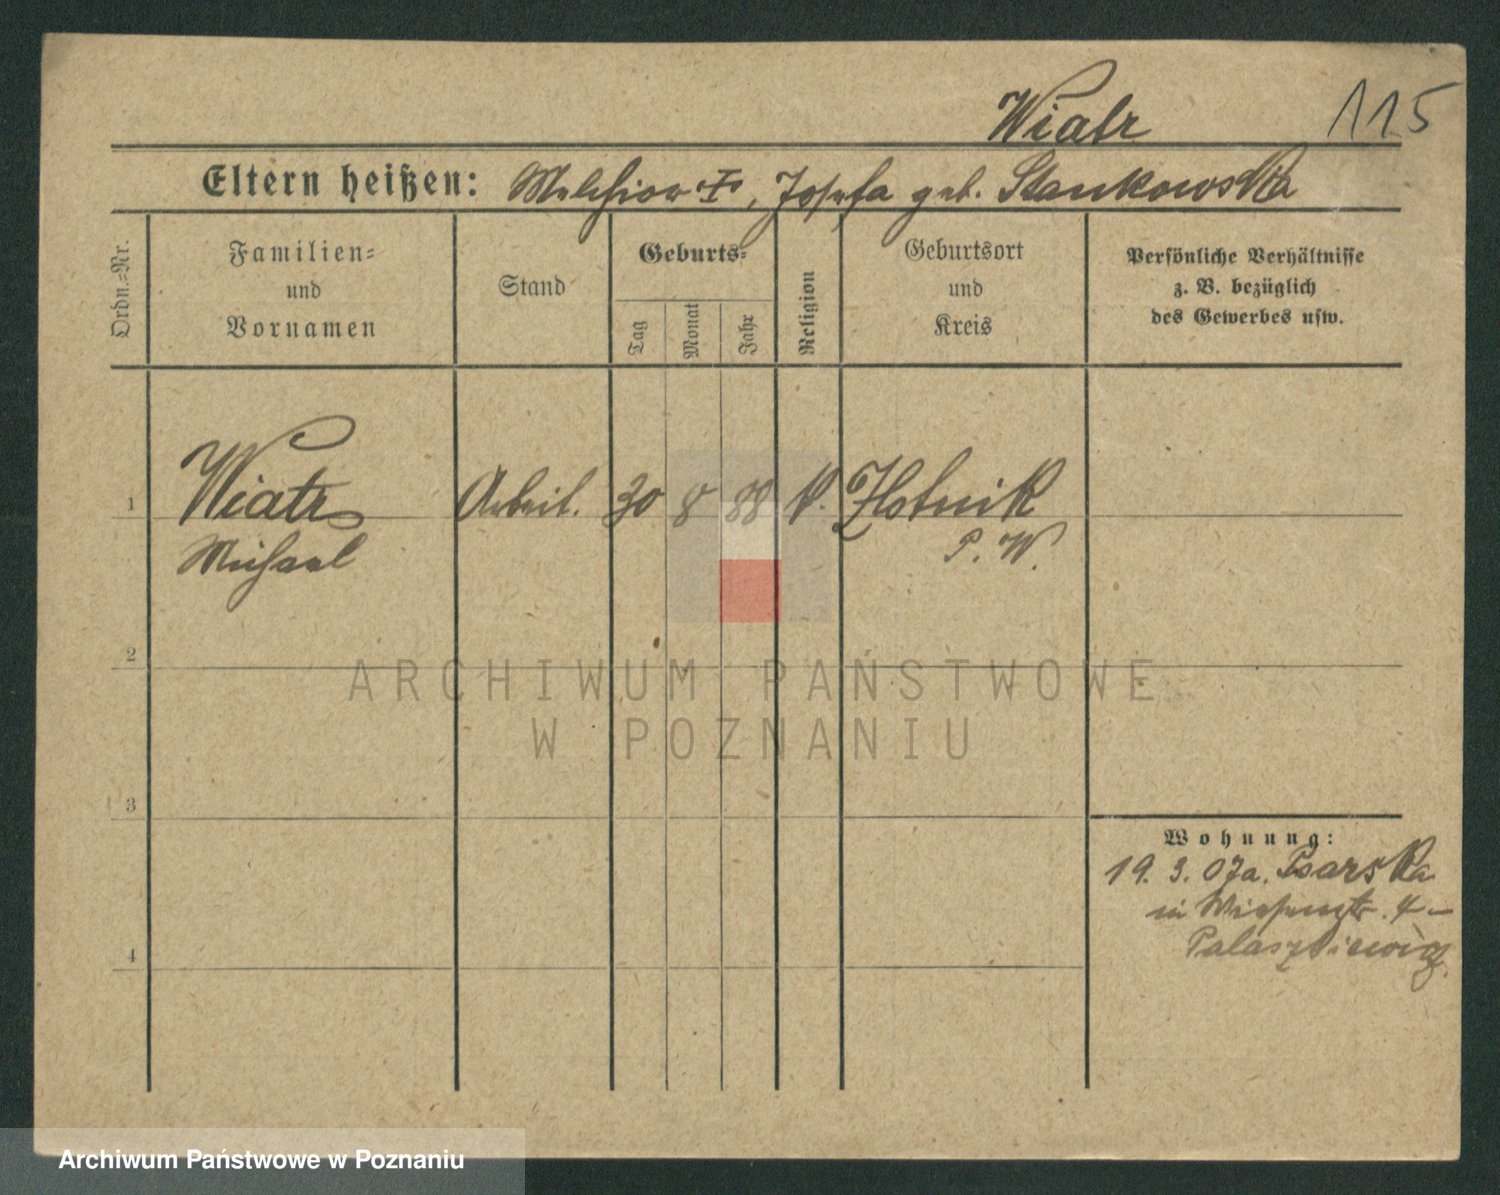 Wiatr 115
Eltern heißen: Melchior †, Josefa geb. Stankowska
Ordn.=Nr.
Familien=
und
Vornamen
Stand
Geburts=
Tag
Monat
Jahr
Religion
Geburtsort
und
Kreis
Persönliche Verhältnisse
z. B. bezüglich
des Gewerbes usw.
1 Wiatr Arbeit. 30 8 88 k. Zlotnik
Michael P. W.
2
3
4
ARCHIWUM PAŃSTWOWE
W POZNANIU
Wohnung:
19. 3. 07 a. Psarska
in Wiesenstr. 4 –
Archiwum Państwowe w Poznaniu